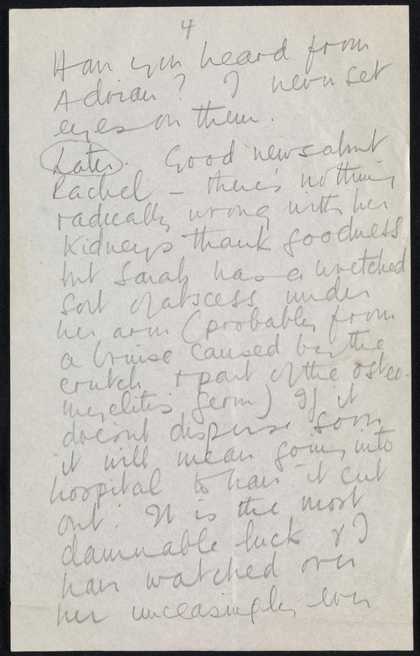 4
Have you heard from
Adrian? I never set
eyes on them.
Later. Good news about
Rachel - there's nothing
radically wrong with her
kidneys thank goodness
but Sarah has a wretched
sort of abscess under
her arm (probably from
a bruise caused by the
crutch & part of the osteo-
myelitis germ) If it
doesnt disperse soon
it will mean going into
hospital to have it cut
out. It is the most
damnable luck & I
have watched over
her unceasingly ever